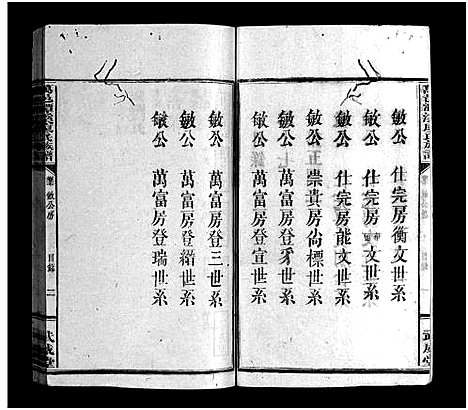 敏公 仕完房衡文世系
敏公 仕完房 文世系
敏公 仕完房能文世系
敏公 正崇貴房尚標世系
敏公 萬富房登身世系
敏公 萬富房登宜世系
敏公 萬富房登三世系
敏公 萬富房登縉世系
敏公 萬富房登瑞世系
族譜
敏公房
目錄
二
武威堂